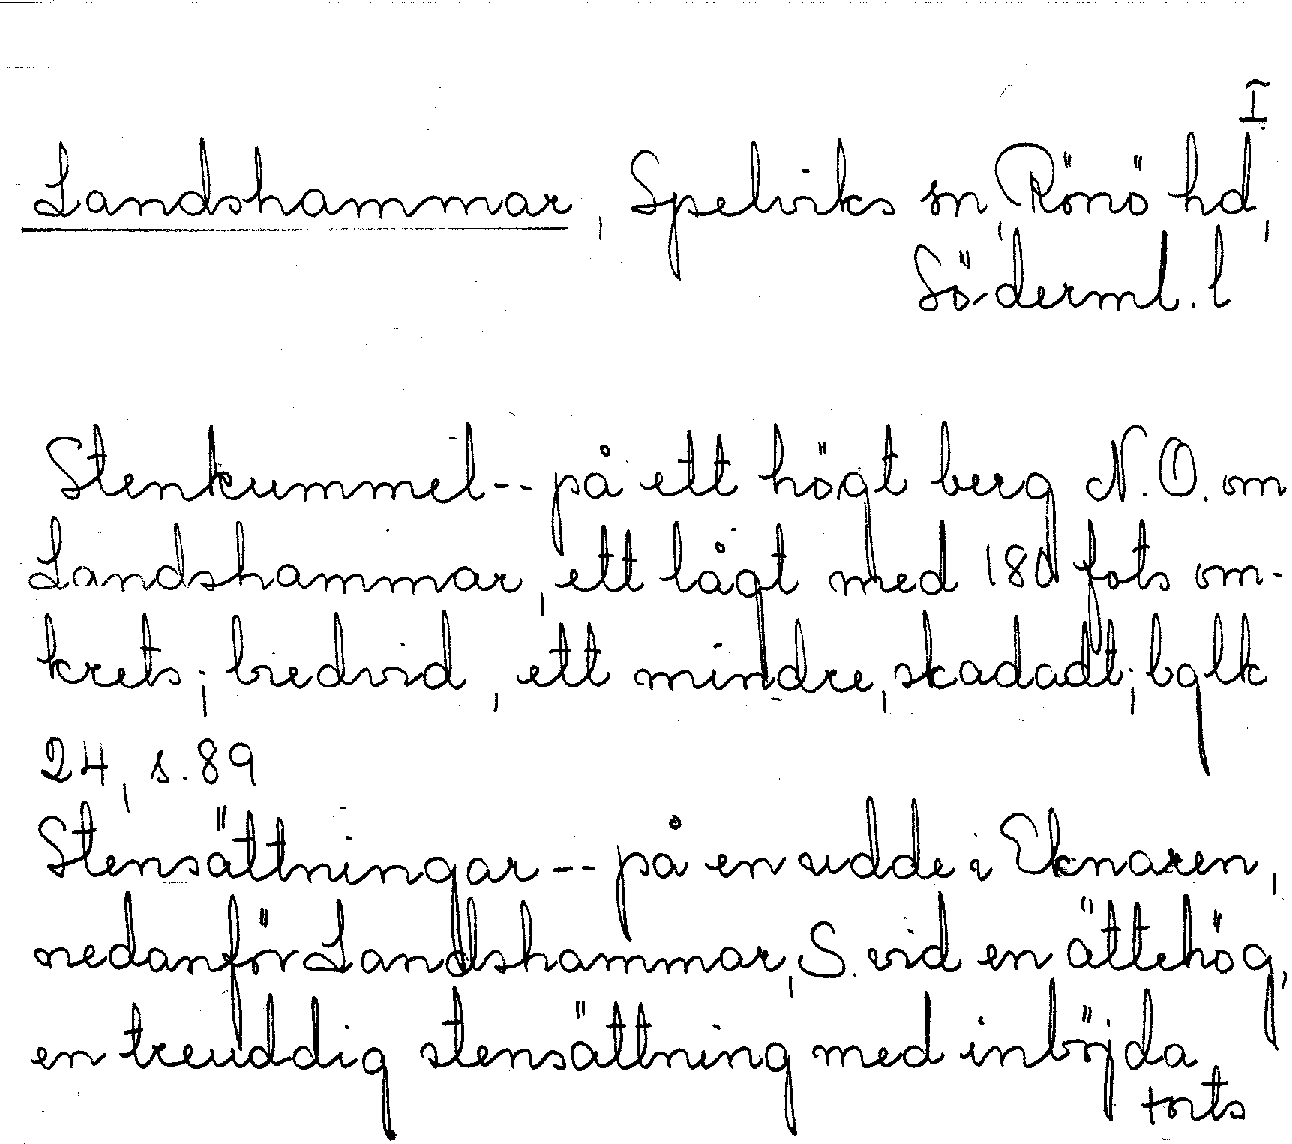 I
Landshammar, Spelviks sn, Rönö hd,
Söderml. l
Stenkummel -- på ett högt berg N.O. om
Landshammar, ett lågt med 180 fots om-
krets; bredvid, ett mindre, skadadt;
24, s. 89
Stensättningar -- på en udde i Eknaren,
nedanför Landshammar, S. vid en ättehög,
en treuddig stensättning med inböjda
forts